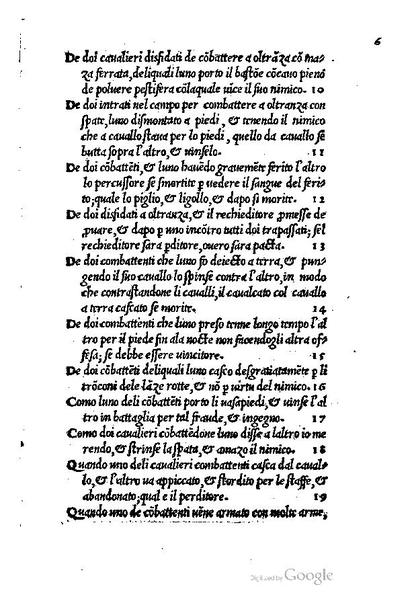 6
De doi caualieri disfidati de cōbattere a oltrāza cō ma-
za ferrata, deliquali luno porto il bastōe cōcauo pieno
de poluere pestifera cōlaquale uice il suo nimico. 10
De doi intrati nel campo per combattere a oltranza con
spate, luno dismontato a piedi, & tenendo il nimico
che a cauallo staua per lo piedi, quello da cauallo se
butta sopra l'altro, & uinselo. 11
De doi cōbattēti, & luno hauēdo grauemēte ferito l'altro
lo percussore se smortite p uedere il sangue del feri-
to; quale lo piglio, & ligollo, & dapo si morite. 12
De doi disfidati a oltranza, & il rechieditore pmesse de
puare, & dapo p uno incōtro tutti doi trapassati; sel
rechieditore sara pditore, ouero sara pacta. 13
De doi combattenti che luno fo deiecto a terra, & pun-
gendo il suo cauallo lo spinse contra l'altro, in modo
che contrastandone li caualli, il caualcato col cauallo
a terra cascato se morite. 14
De doi combattenti che luno preso tenne longo tempo l'al
tro per il piede fin ala nocte non facendogli altra of-
fesa; se debbe essere uincitore. 15
De doi cōbattēti deliquali luno casco desgratiatamēte p li
trōconi dele lāze rotte, & nō p uirtu del nimico. 16
Como luno deli cōbattēti porto li uasapiedi, & uinse l'al
tro in battaglia per tal fraude, & ingegno. 17
Como doi caualieri cōbattēdone luno disse a laltro io me
rendo, & strinse la spata, & amazo il nimico. 18
Quando uno deli caualieri combattenti casca dal caual-
lo, & l'altro ua appiccato, & stordito per le staffe, &
abandonato; qual e il perditore. 19
Quando uno de cōbattenti uēne armato con molte arme,
Digitized by Google